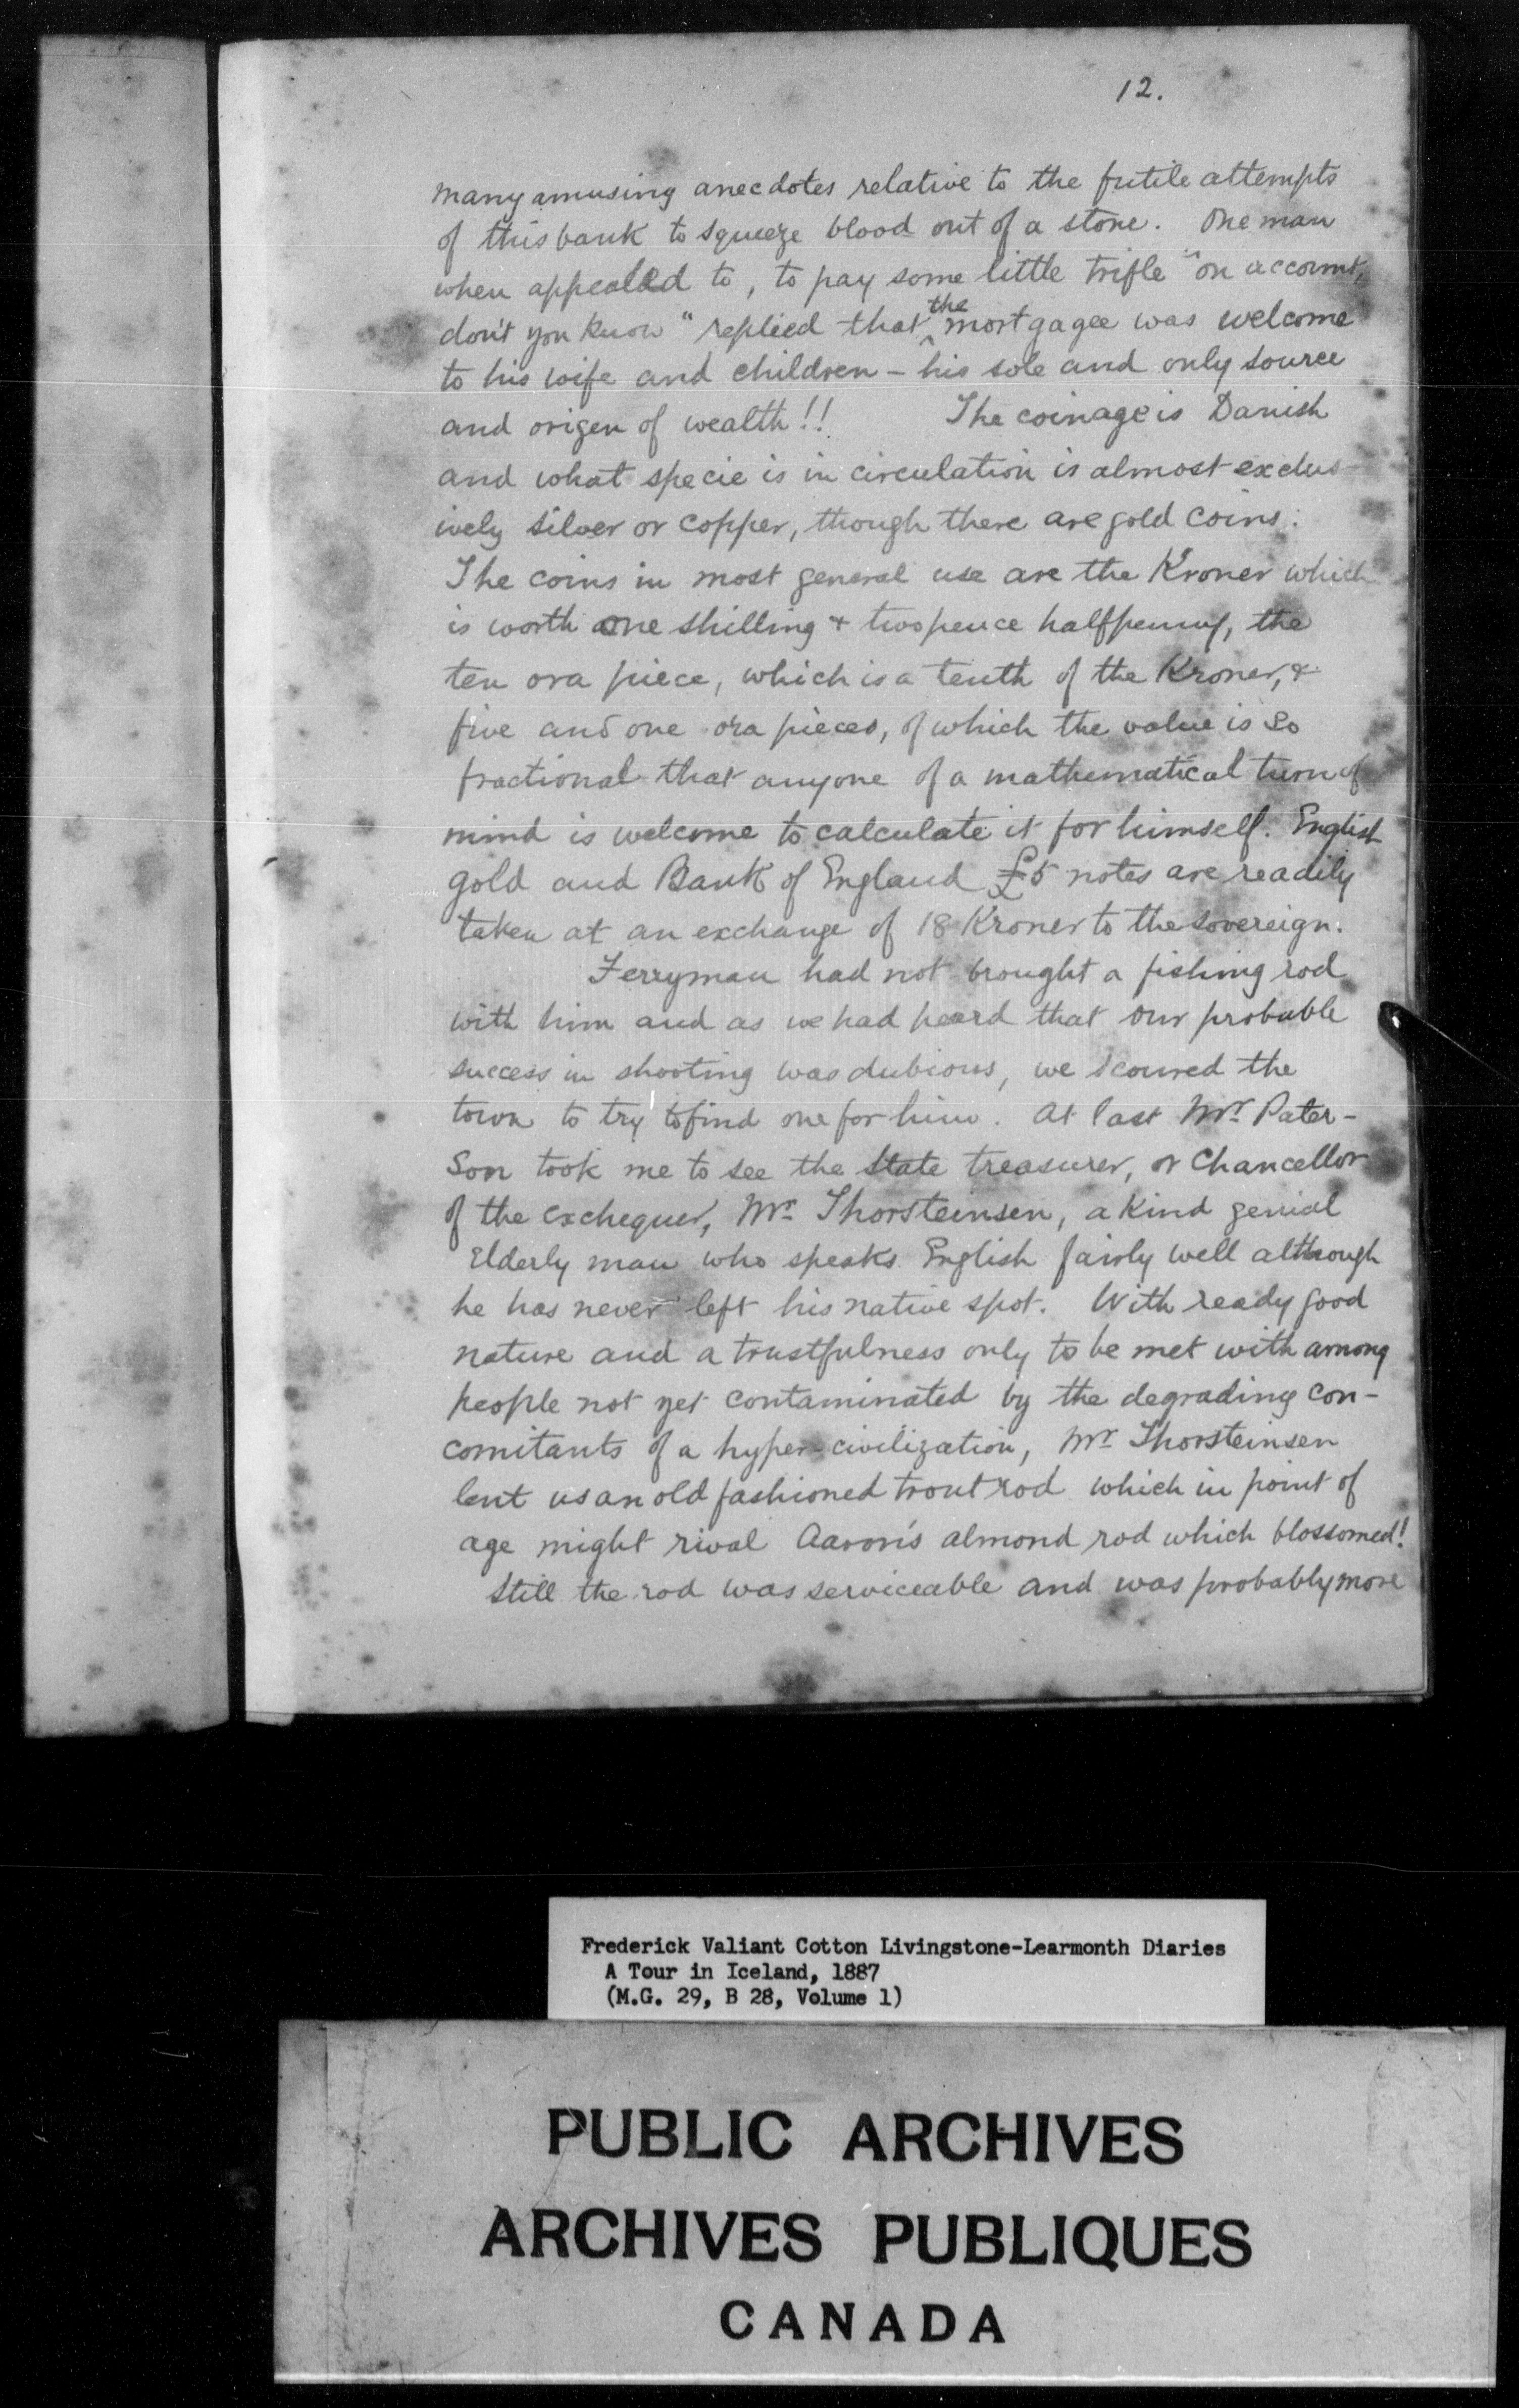 12.
many amusing anecdotes relative to the futile attempts
of this bank to squeeze blood out of a stone. One man
when appealed to, to pay some little trifle "on account,
don't you know" replied that the mortgagee was welcome
to his wife and children - his sole and only source
and origen of wealth!! The coinage is Danish
and what specie is in circulation is almost exclus-
ively silver or copper, though there are gold coins.
The coins in most general use are the Kroner which
is worth one shilling & twopence halfpenny, the
ten ora piece, which is a tenth of the Kroner, &
five and one ora pieces, of which the value is so
fractional that anyone of a mathematical turn of
mind is welcome to calculate it for himself. English
gold and Bank of England £5 notes are readily
taken at an exchange of 18 Kroner to the sovereign.
Ferryman had not brought a fishing rod
with him and as we had heard that our probable
success in shooting was dubious, we scoured the
town to try to find one for him. At last Mr. Pater-
son took me to see the state treasurer, or Chancellor
of the exchequer, Mr. Thorsteinsen, a kind genial
elderly man who speaks English fairly well although
he has never left his native spot. With ready good
nature and a trustfulness only to be met with among
people not yet contaminated by the degrading con-
comitants of a hyper-civilization, Mr. Thorsteinsen
lent us an old fashioned trout rod which in point of
age might rival Aaron's almond rod which blossomed!
Still the rod was serviceable and was probably more
Frederick Valiant Cotton Livingstone-Learmonth Diaries
A Tour in Iceland, 1887
(M.G. 29, B 28, Volume 1)
PUBLIC ARCHIVES
ARCHIVES PUBLIQUES
CANADA